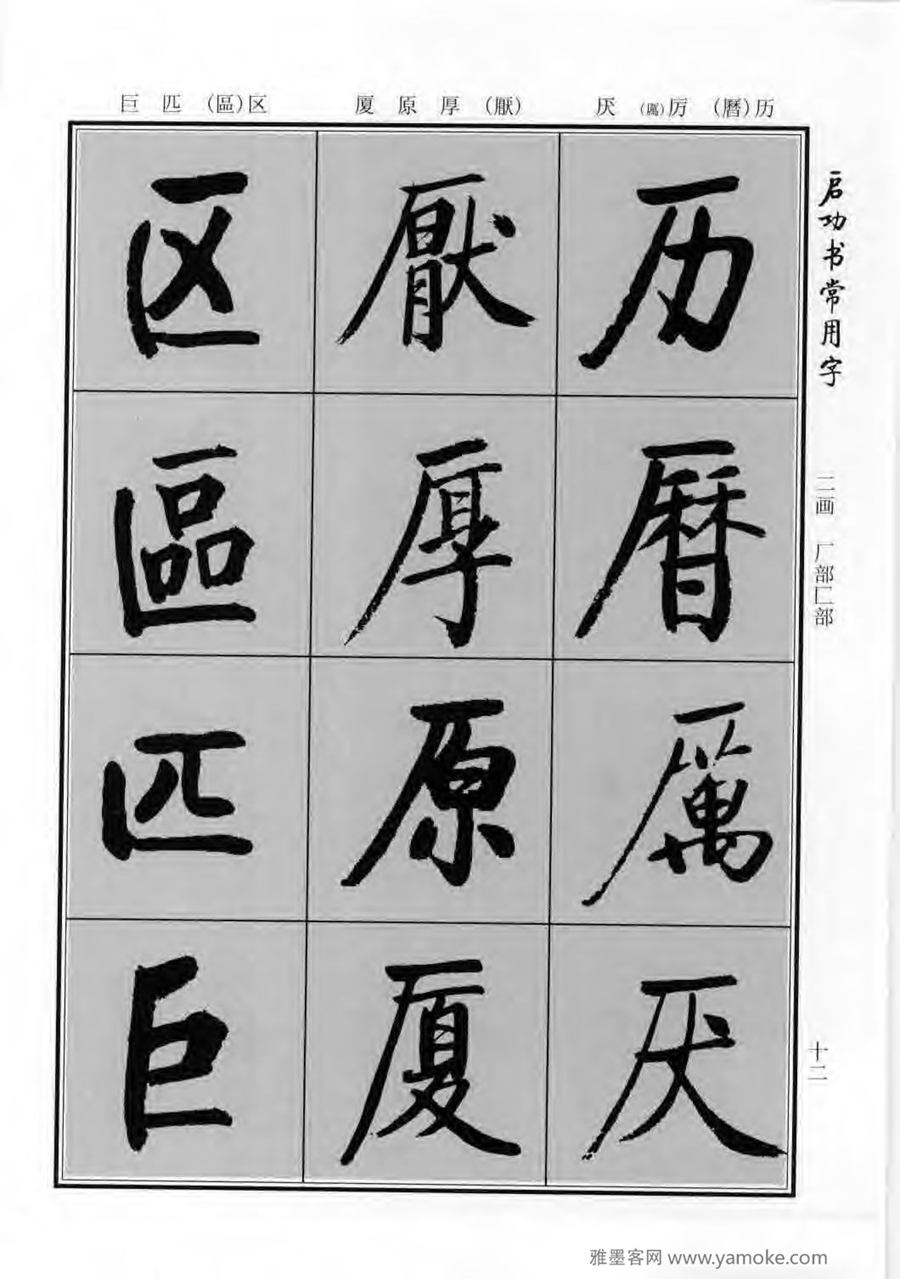 巨 匹 (區)区
厦 原 厚 (厭)
厌 (厲)厉 (曆)历
启功书常用字
二画 厂部匚部
十二
历
曆
厲
厌
厭
厚
原
厦
区
區
匹
巨
雅墨客网 www.yamoke.com